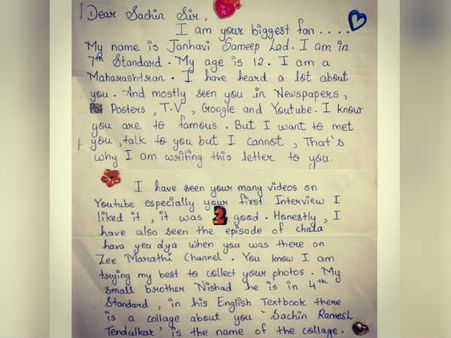 Dear Sachin Sir,
I am your biggest fan....
My name is Janhavi Sameep Lad. I am in
7th Standard. My age is 12. I am a
Maharashtrian. I have heard a lot about
you. And mostly seen you in Newspapers,
Posters, T.V, Google and Youtube. I know
you are to famous. But I want to met
you, talk to you but I cannot, That's
why I am writing this letter to you.
I have seen your many videos on
Youtube especially your first Interview I
liked it, it was 2 good. Honestly, I
have also seen the episode of chala
hava yeu dya when you was there on
Zee Marathi Channel. You know I am
trying my best to collect your photos. My
small brother Nishad he is in 4th
Standard, in his English Textbook there
is a collage about you 'Sachin Ramesh
Tendulkar' is the name of the collage.